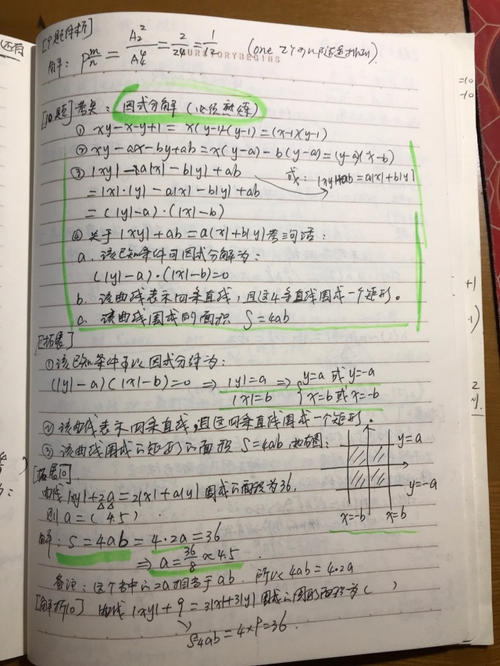 [9题解析]
解: P_n^m = A_2^2/A_4^4 = 2/24 = 1/12
[10题] 考点: 因式分解 (必须熟练)
① xy-x-y+1 = x(y-1)-(y-1)=(x-1)(y-1)
② xy-ax-by+ab = x(y-a)-b(y-a)=(y-a)(x-b)
③ |xy|-a|x|-b|y|+ab 或: |xy|+ab=a|x|+b|y|
=|x|·|y|-a|x|-b|y|+ab
=(|y|-a)·(|x|-b)
④ 关于 |xy|+ab=a|x|+b|y| 考三句话:
a. 该已知条件可因式分解为:
(|y|-a)·(|x|-b)=0
b. 该曲线表示四条直线,且这4条直线围成一个矩形。
c. 该曲线围成的面积 S=4ab
[拓展]
①该已知条件可以因式分解为:
(|y|-a)(|x|-b)=0 ⇒ |y|=a ⇒ y=a 或 y=-a
|x|=b x=b 或 x=-b
②该曲线表示四条直线,且这四条直线围成一个矩形。
③该曲线围成的矩形的面积 S=4ab 如图:
y=a
y=-a
x=-b x=b
[拓展10]
曲线 |xy|+2a=2|x|+a|y| 围成的面积为36,
则 a=( 4.5 )
解: S=4ab=4·2a=36
⇒ a=36/8=4.5
备注: 这个书中的2a相当于ab. 所以 4ab=4·2a
[解析10] 曲线 |xy|+9=3|x|+3|y| 围成的图形面积为( )
S=4ab=4×9=36.